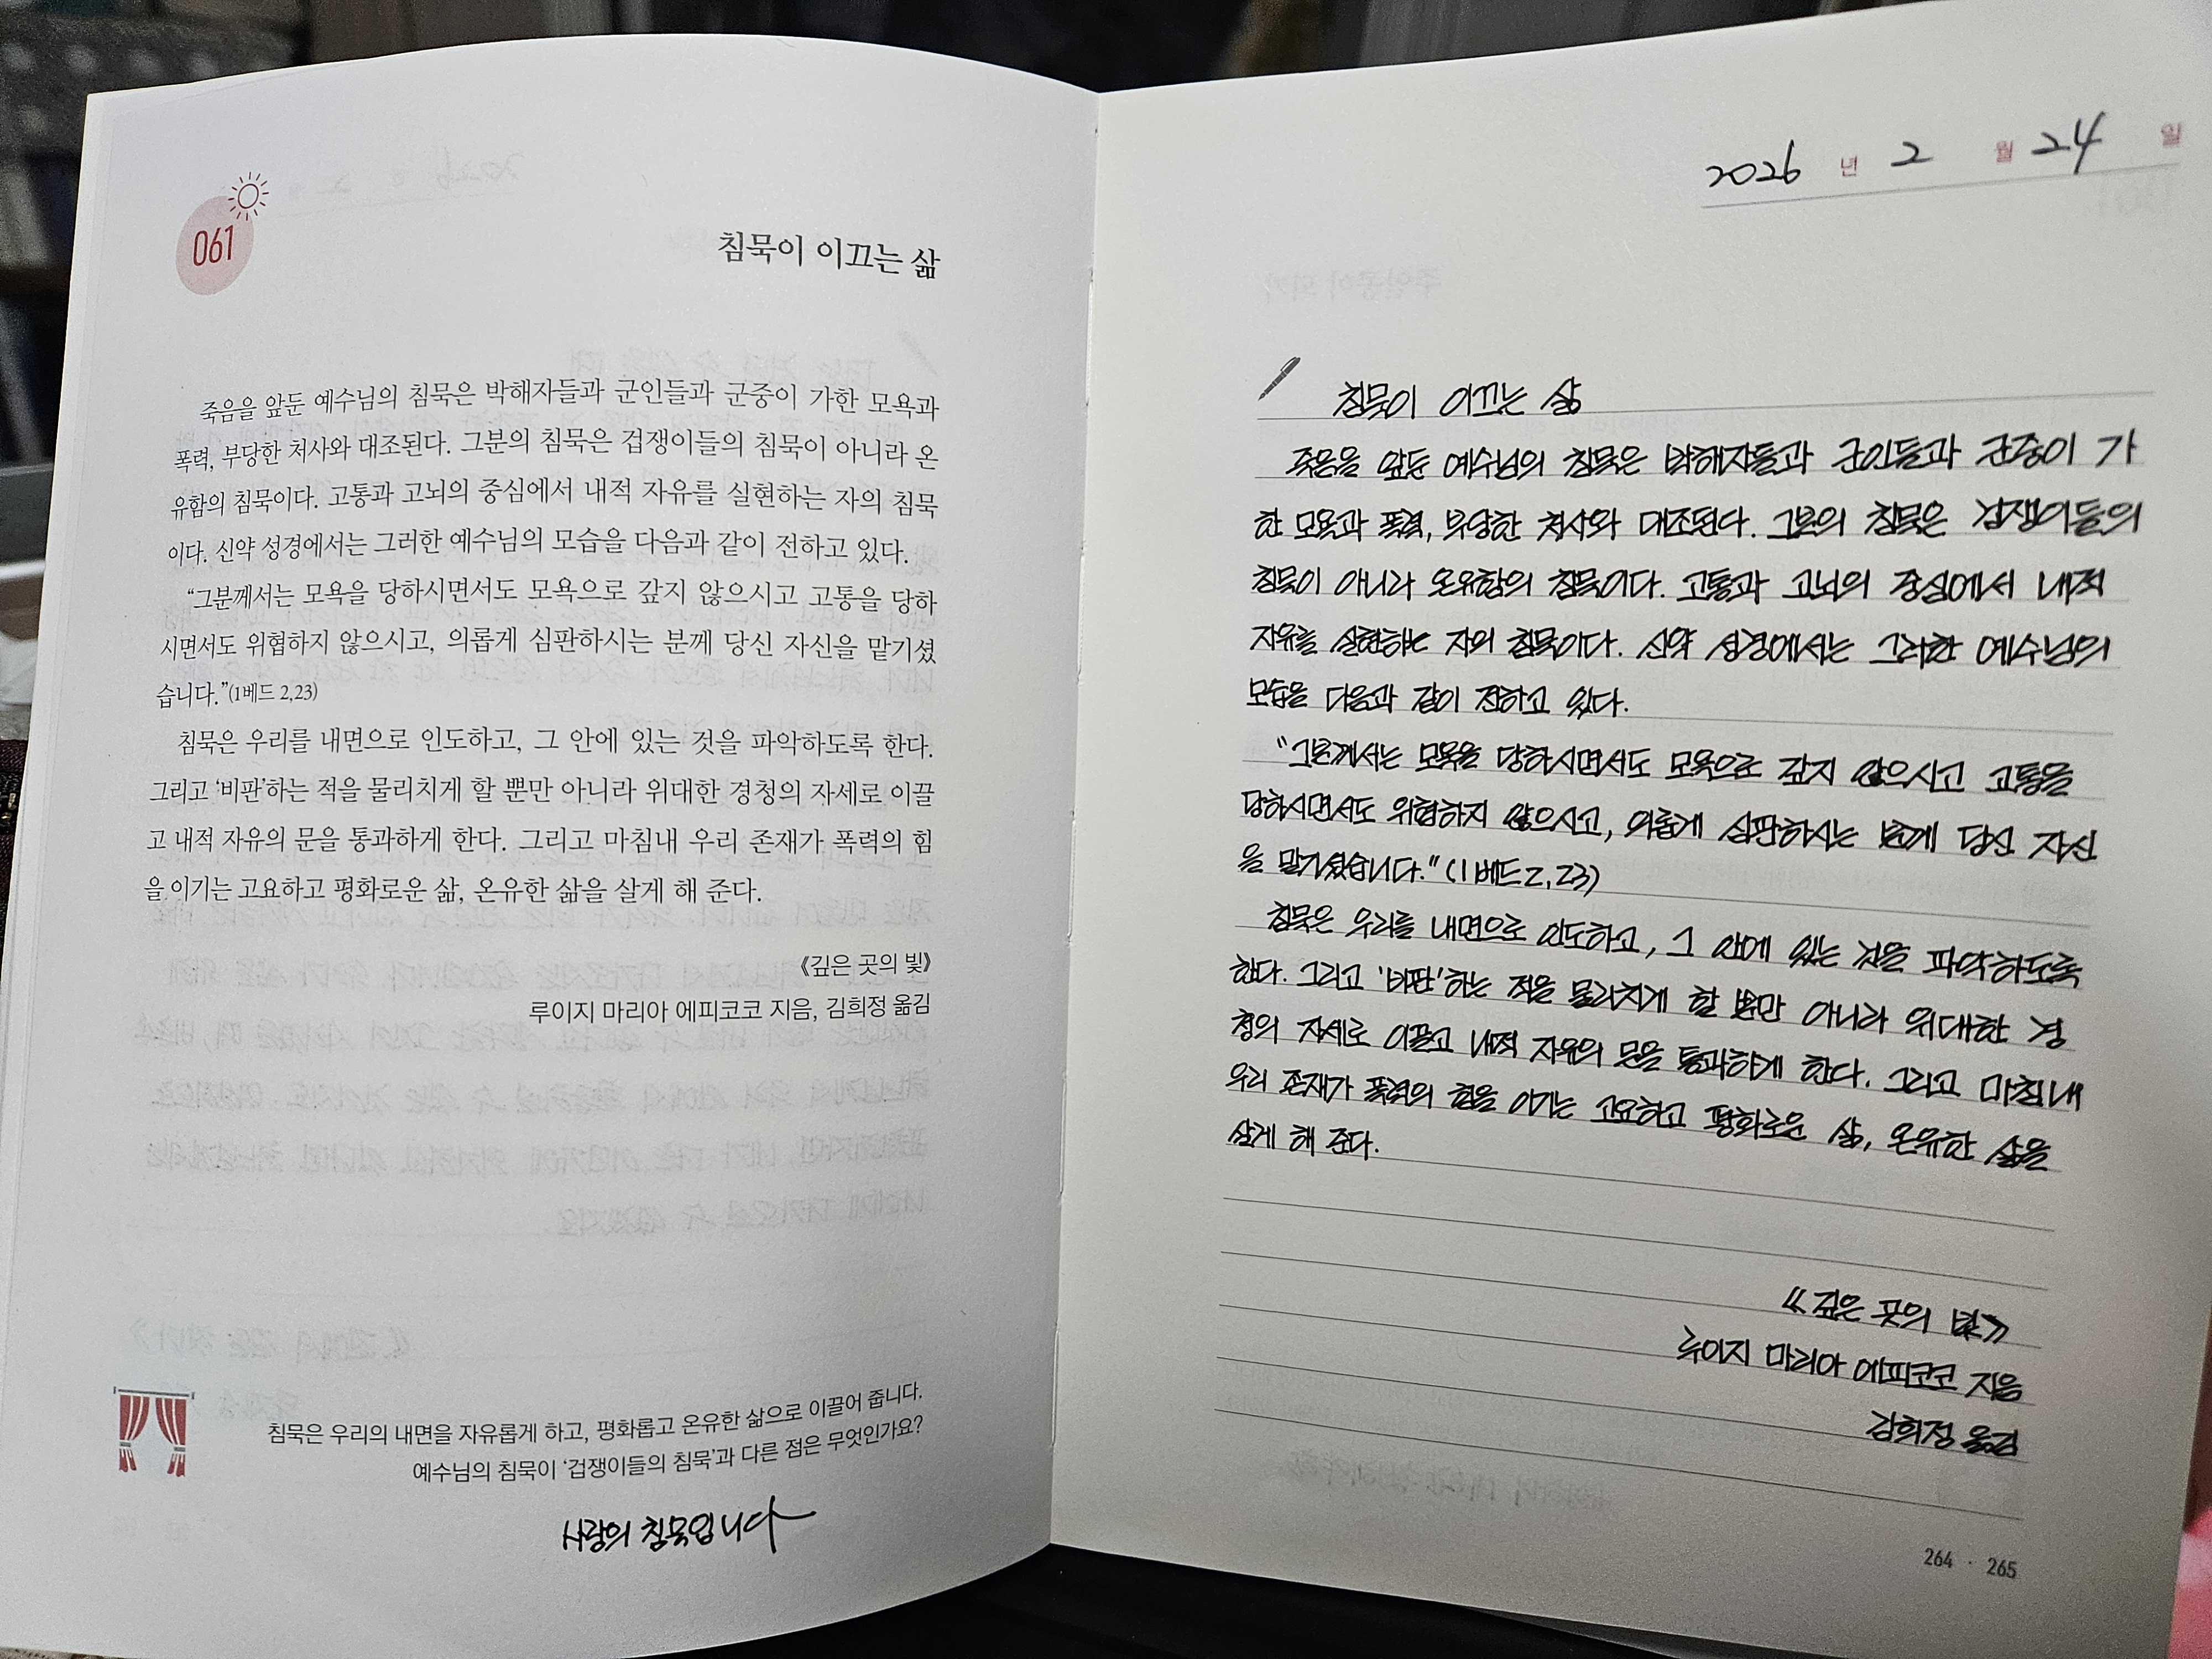 061
침묵이 이끄는 삶
죽음을 앞둔 예수님의 침묵은 박해자들과 군인들과 군중이 가한 모욕과
폭력, 부당한 처사와 대조된다. 그분의 침묵은 겁쟁이들의 침묵이 아니라 온
유함의 침묵이다. 고통과 고뇌의 중심에서 내적 자유를 실현하는 자의 침묵
이다. 신약 성경에서는 그러한 예수님의 모습을 다음과 같이 전하고 있다.
“그분께서는 모욕을 당하시면서도 모욕으로 갚지 않으시고 고통을 당하
시면서도 위협하지 않으시고, 의롭게 심판하시는 분께 당신 자신을 맡기셨
습니다.”(1베드 2,23)
침묵은 우리를 내면으로 인도하고, 그 안에 있는 것을 파악하도록 한다.
그리고 ‘비판’하는 적을 물리치게 할 뿐만 아니라 위대한 경청의 자세로 이끌
고 내적 자유의 문을 통과하게 한다. 그리고 마침내 우리 존재가 폭력의 힘
을 이기는 고요하고 평화로운 삶, 온유한 삶을 살게 해 준다.
《깊은 곳의 빛》
루이지 마리아 에피코코 지음, 김희정 옮김
침묵은 우리의 내면을 자유롭게 하고, 평화롭고 온유한 삶으로 이끌어 줍니다.
예수님의 침묵이 ‘겁쟁이들의 침묵’과 다른 점은 무엇인가요?
사랑의 침묵입니다
2026 년 2 월 24 일
침묵이 이끄는 삶
죽음을 앞둔 예수님의 침묵은 박해자들과 군인들과 군중이 가
한 모욕과 폭력, 부당한 처사와 대조된다. 그분의 침묵은 겁쟁이들의
침묵이 아니라 온유함의 침묵이다. 고통과 고뇌의 중심에서 내적
자유를 실현하는 자의 침묵이다. 신약 성경에서는 그러한 예수님의
모습을 다음과 같이 전하고 있다.
“그분께서는 모욕을 당하시면서도 모욕으로 갚지 않으시고 고통을
당하시면서도 위협하지 않으시고, 의롭게 심판하시는 분께 당신 자신
을 맡기셨습니다.” (1베드 2,23)
침묵은 우리를 내면으로 인도하고, 그 안에 있는 것을 파악하도록
한다. 그리고 ‘비판’하는 적을 물리치게 할 뿐만 아니라 위대한 경
청의 자세로 이끌고 내적 자유의 문을 통과하게 한다. 그리고 마침내
우리 존재가 폭력의 힘을 이기는 고요하고 평화로운 삶, 온유한 삶을
살게 해 준다.
《깊은 곳의 빛》
루이지 마리아 에피코코 지음
김희정 옮김
264 · 265